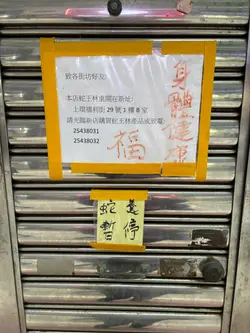 致各街坊好友:
本店蛇王林重開在新址:
上環福利街29號1樓B室
請光臨新店購買蛇王林產品或致電:
25438031
25438032
身體健康
福
蛇羹
暫停